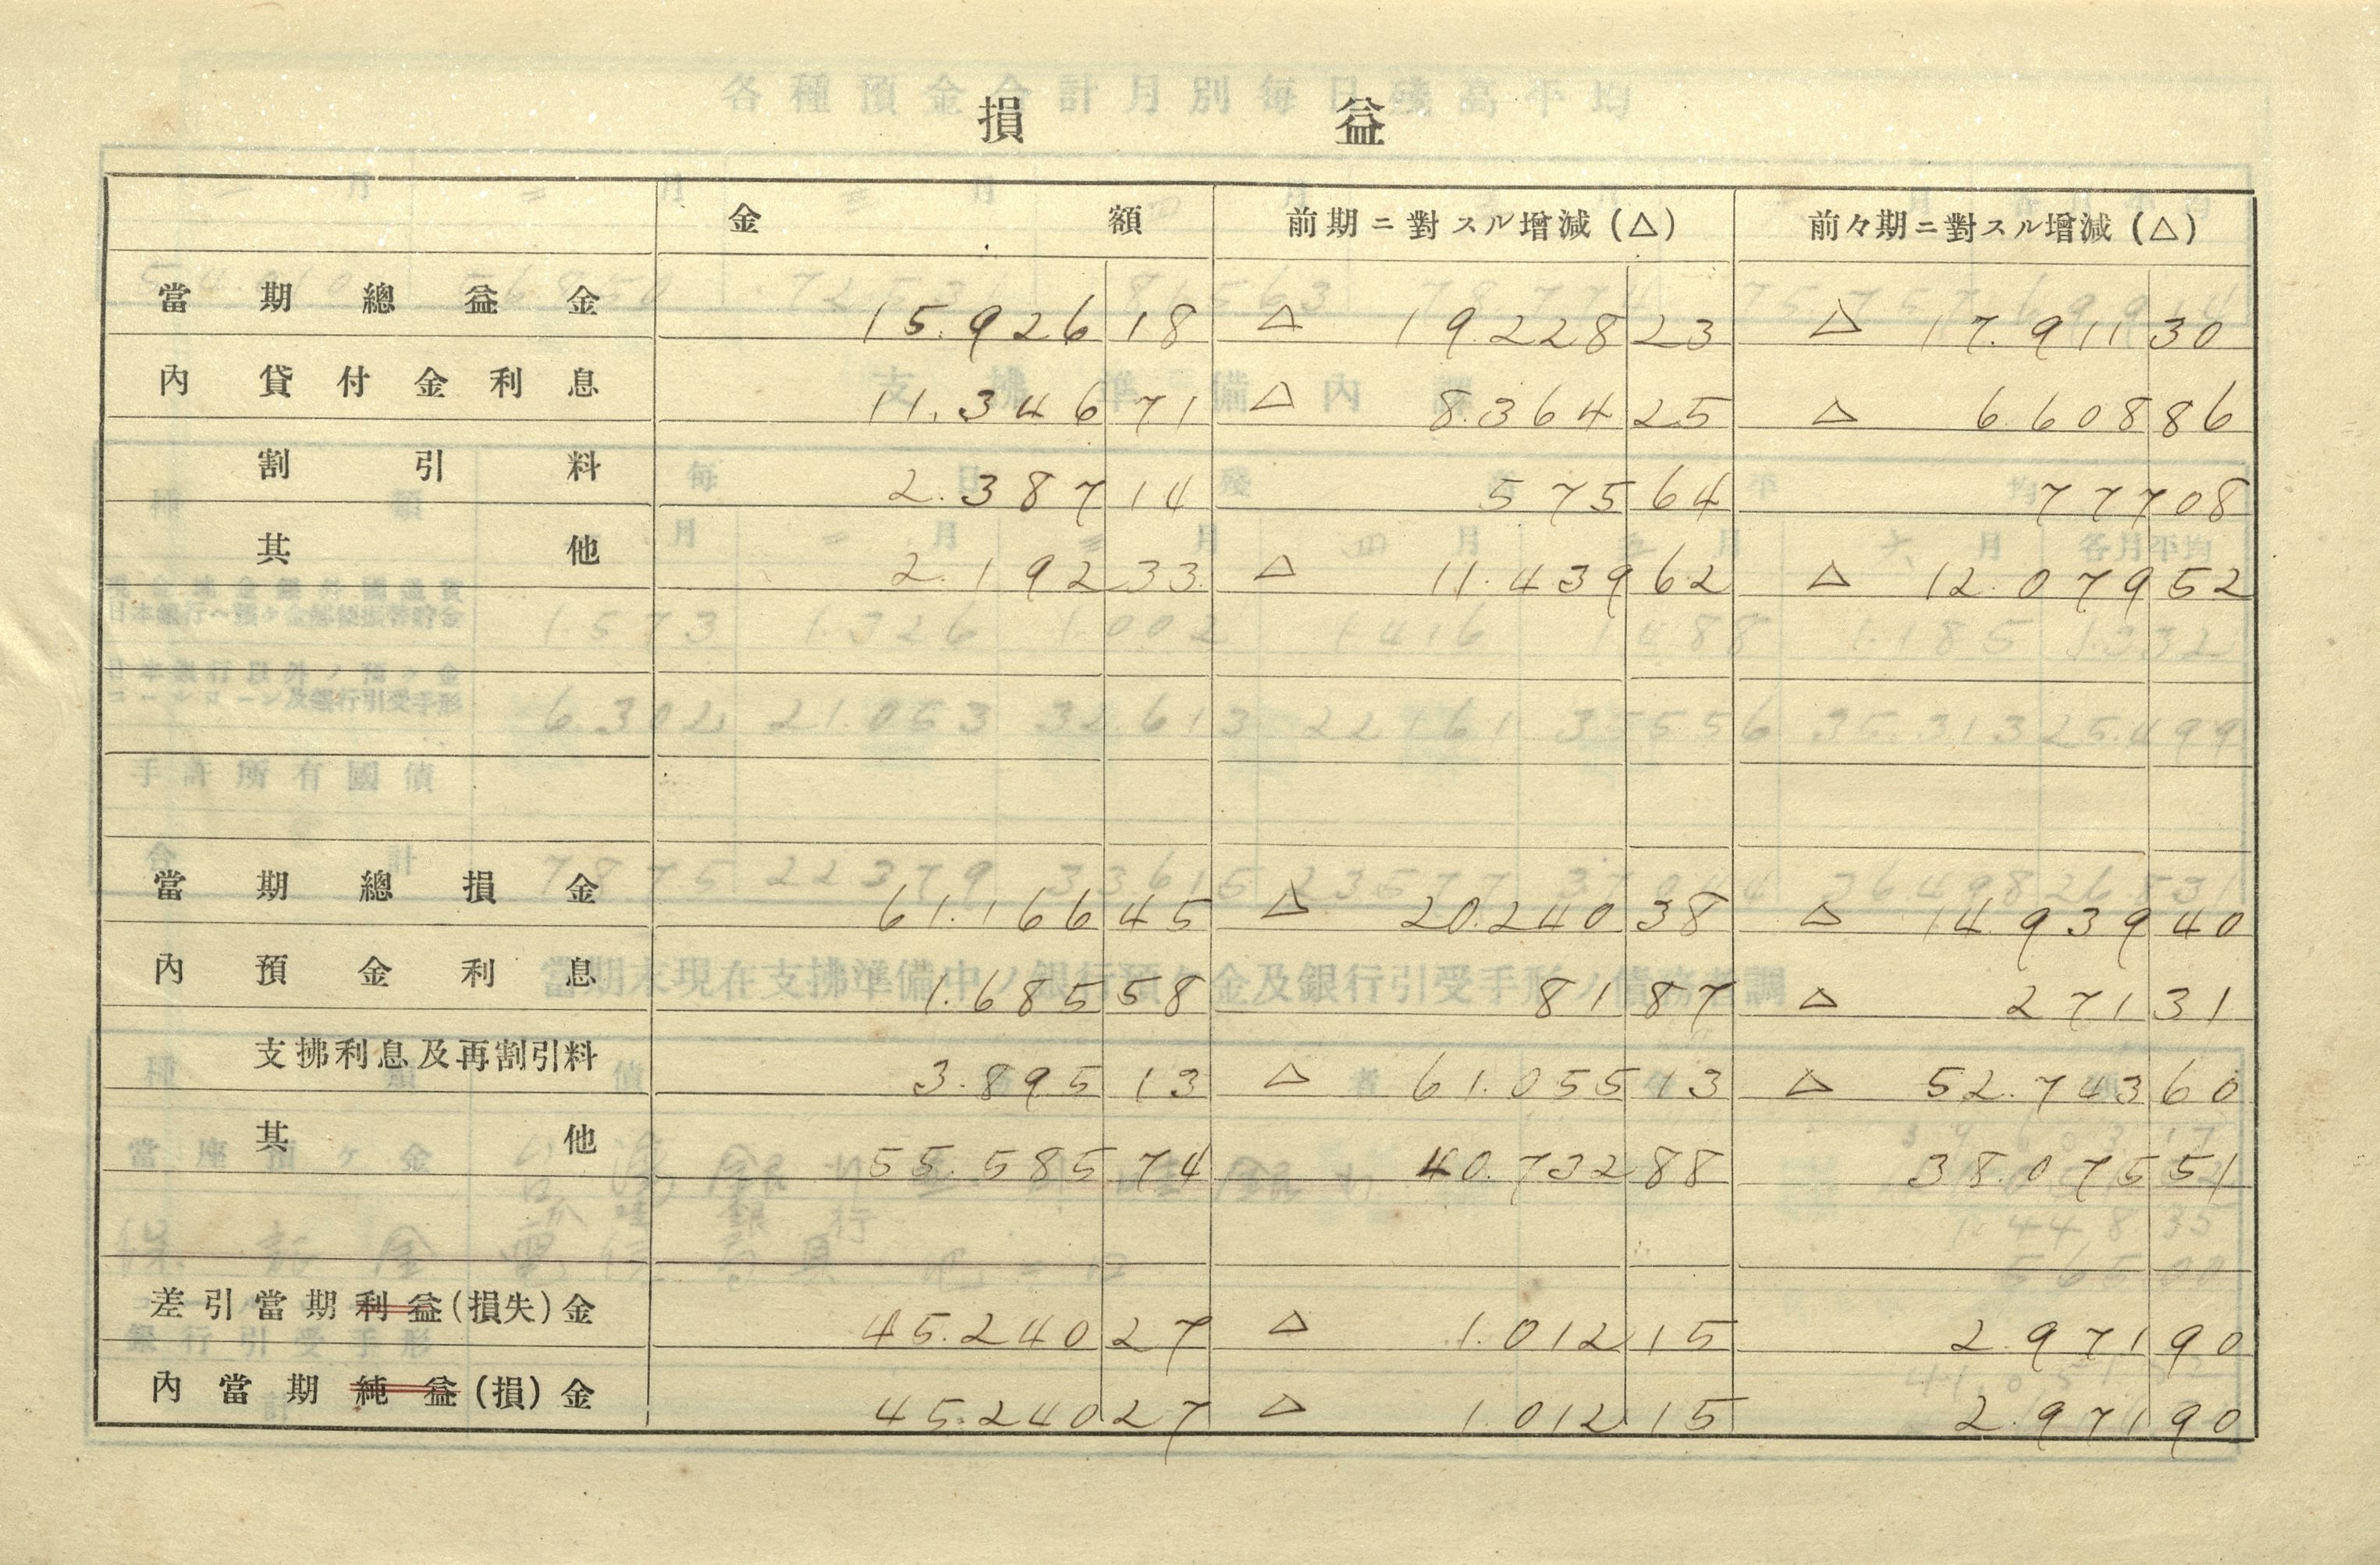 損益
金額 前期ニ對スル增減(△) 前々期ニ對スル增減(△)
當期總益金 15.926 18 △ 19.228 23 △ 17.911 30
內 貸付金利息 11.346 71 △ 8.364 25 △ 6.608 86
割引料 2.387 14 575 64 777 08
其他 2.192 33 △ 11.439 62 △ 12.079 52
當期總損金 61.166 45 △ 20.240 38 △ 14.939 40
內 預金利息 1.685 58 81 87 △ 271 31
支拂利息及再割引料 3.895 13 △ 61.055 13 △ 52.743 60
其他 55.585 74 40.732 88 38.075 51
差引當期利益(損失)金 45.240 27 △ 1.012 15 2.971 90
內當期純益(損)金 45.240 27 △ 1.012 15 2.971 90